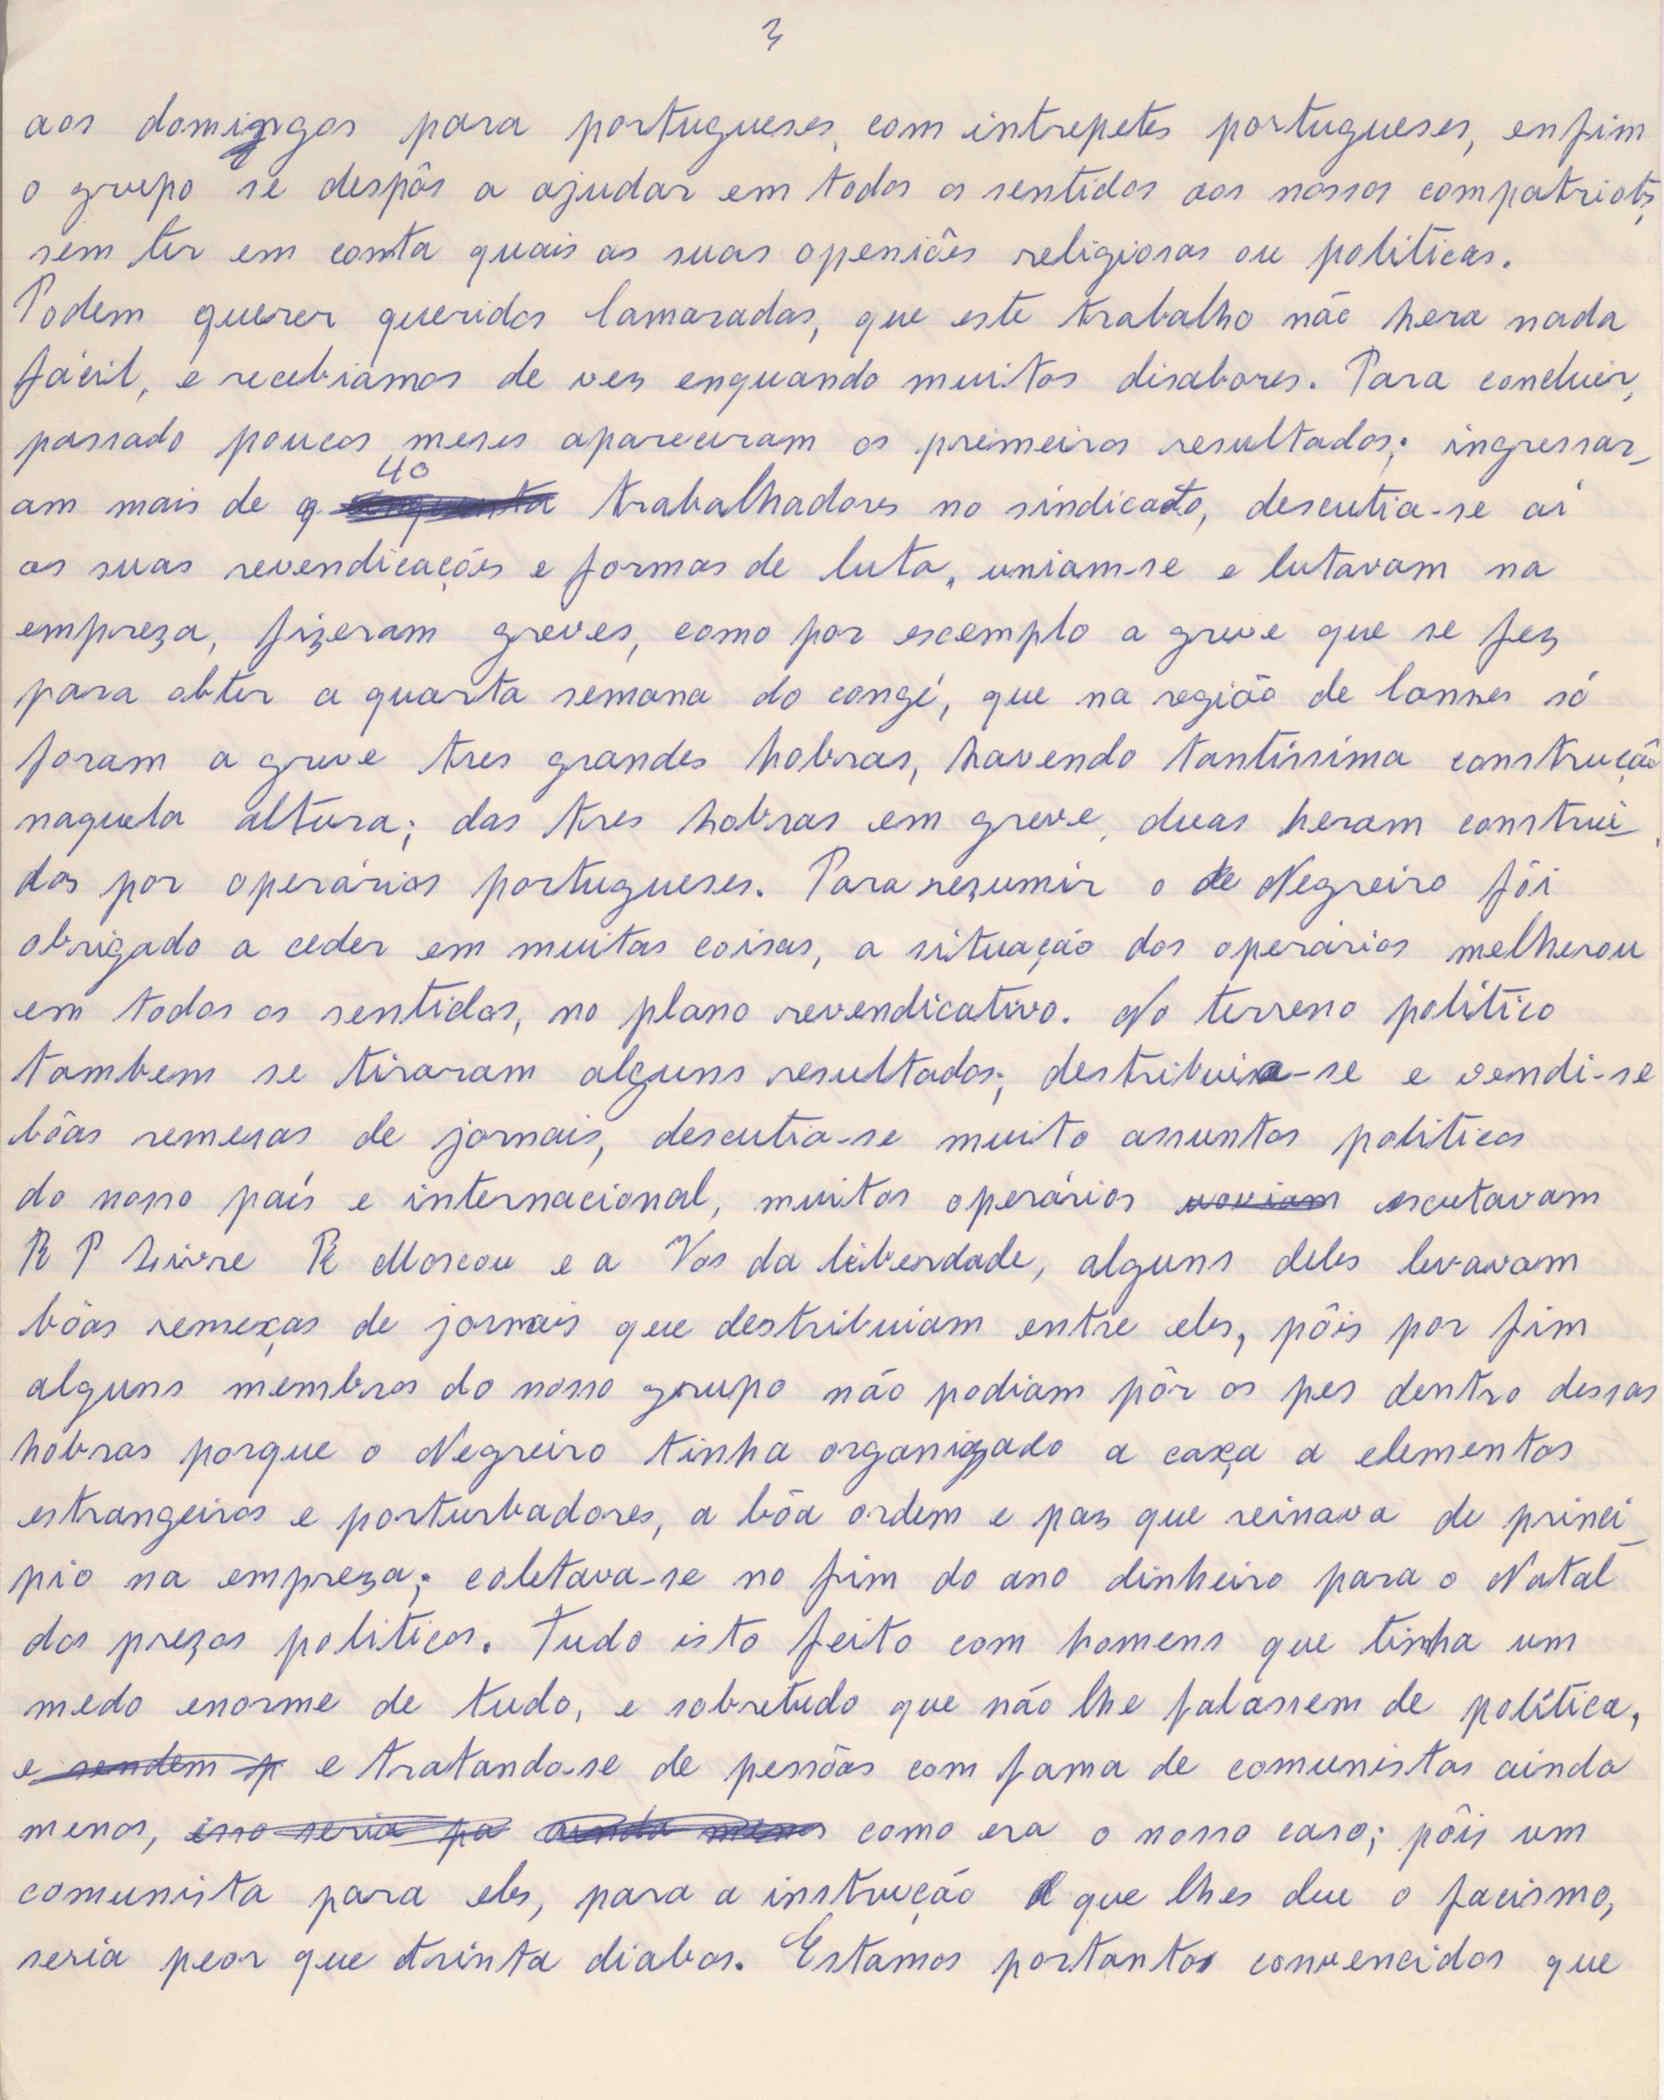 3
aos domingos para portugueses, com intrepetes portugueses, enfim
o grupo se despôs a ajudar em todos os sentidos aos nossos compatriots,
sem ter em conta quais as suas openiões religiosas ou politicas.
Podem querer queridos Camaradas, que este trabalho não hera nada
fácil, e recebiamos de vez enquando muitos disabores. Para concluir,
passado poucos meses apareceram os primeiros resultados; ingressar-
40
am mais de q trabalhadores no sindicato, descutia-se aí
as suas revendicações e formas de luta, uniam-se e lutavam na
empreza, fizeram greves, como por escemplo a greve que se fez
para obter a quarta semana do congé, que na região de Cannes só
foram a greve tres grandes hobras, havendo tantíssima construção
naquela altura; das tres hobras em greve, duas heram construi
das por operários portugueses. Para rezumir o de Negreiro fôi
obrigado a ceder em muitas coisas, a situação dos operários melherou
em todos os sentidos, no plano revendicativo. No terreno político
tambem se tiraram alguns resultados; destribuia-se e vendi-se
bôas remesas de jornais, descutia-se muito assuntos politicos
do nosso país e internacional, muitos operários escutavam
R P Livre R Moscou e a Vos da liberdade, alguns deles levavam
bôas remeças de jornais que destribuiam entre eles, pôis por fim
alguns membros do nosso grupo não podiam pôr os pes dentro dessas
hobras porque o Negreiro tinha organizado a caça a elementos
estrangeiros e porturbadores, a bôa ordem e paz que reinava de princi_
pio na empreza; coletava-se no fim do ano dinheiro para o Natal
dos prezos politicos. Tudo isto feito com homens que tinha um
medo enorme de tudo, e sobretudo que não lhe falassem de política,
e sendem p e tratando-se de pessôas com fama de comunistas ainda
menos, isso seria pa ainda menos como era o nosso caso; pôis um
comunista para eles, para a instrução que lhes deu o facismo,
seria peor que trinta diabos. Estamos portantos convencidos que